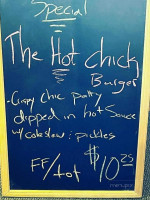 Special
The Hot chick
Burger
- Crispy chic patty
dipped in hot Sauce
w/ coleslaw; pickles
FF/tot $10.25